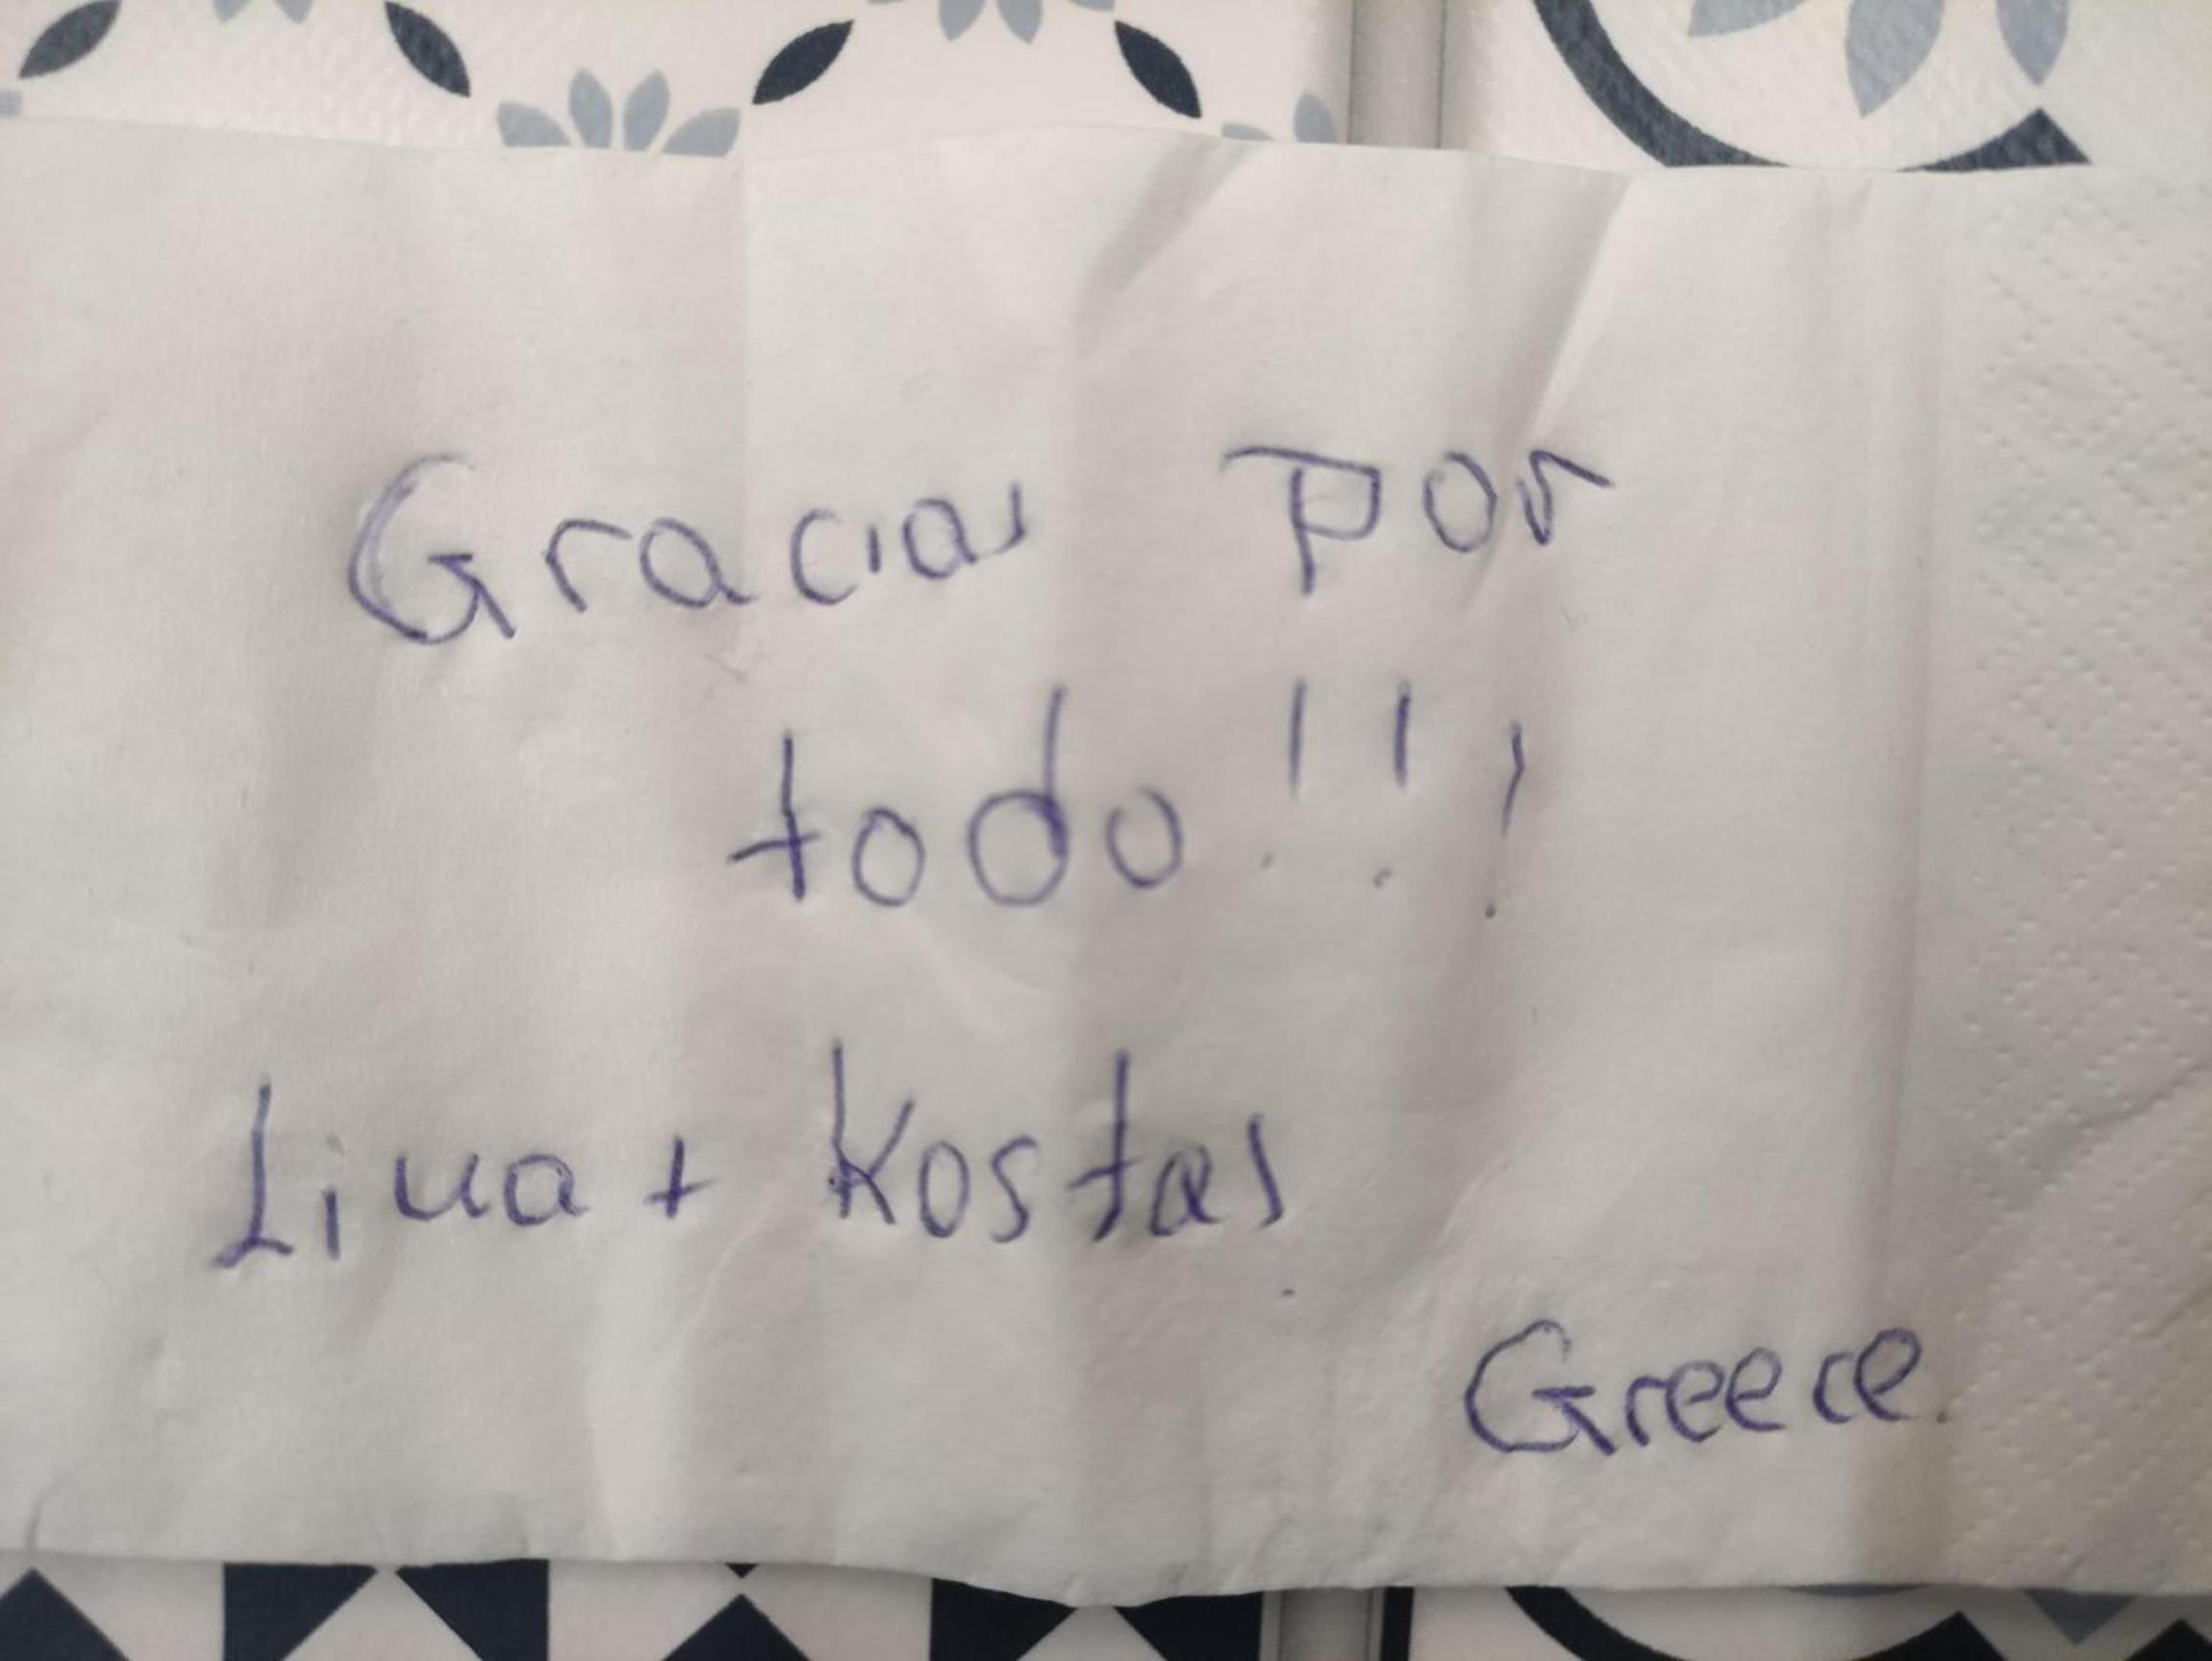 Gracias por
todo!!!
Lina + Kostas
Greece.